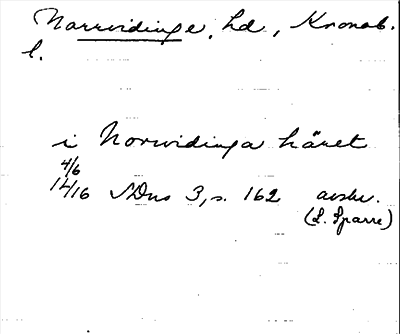 Norrvidinge, hd., Kronob.
l.
i Norwidinga häret
4/6
14/16 SDns 3, s. 162 avskr.
(L. Sparre)